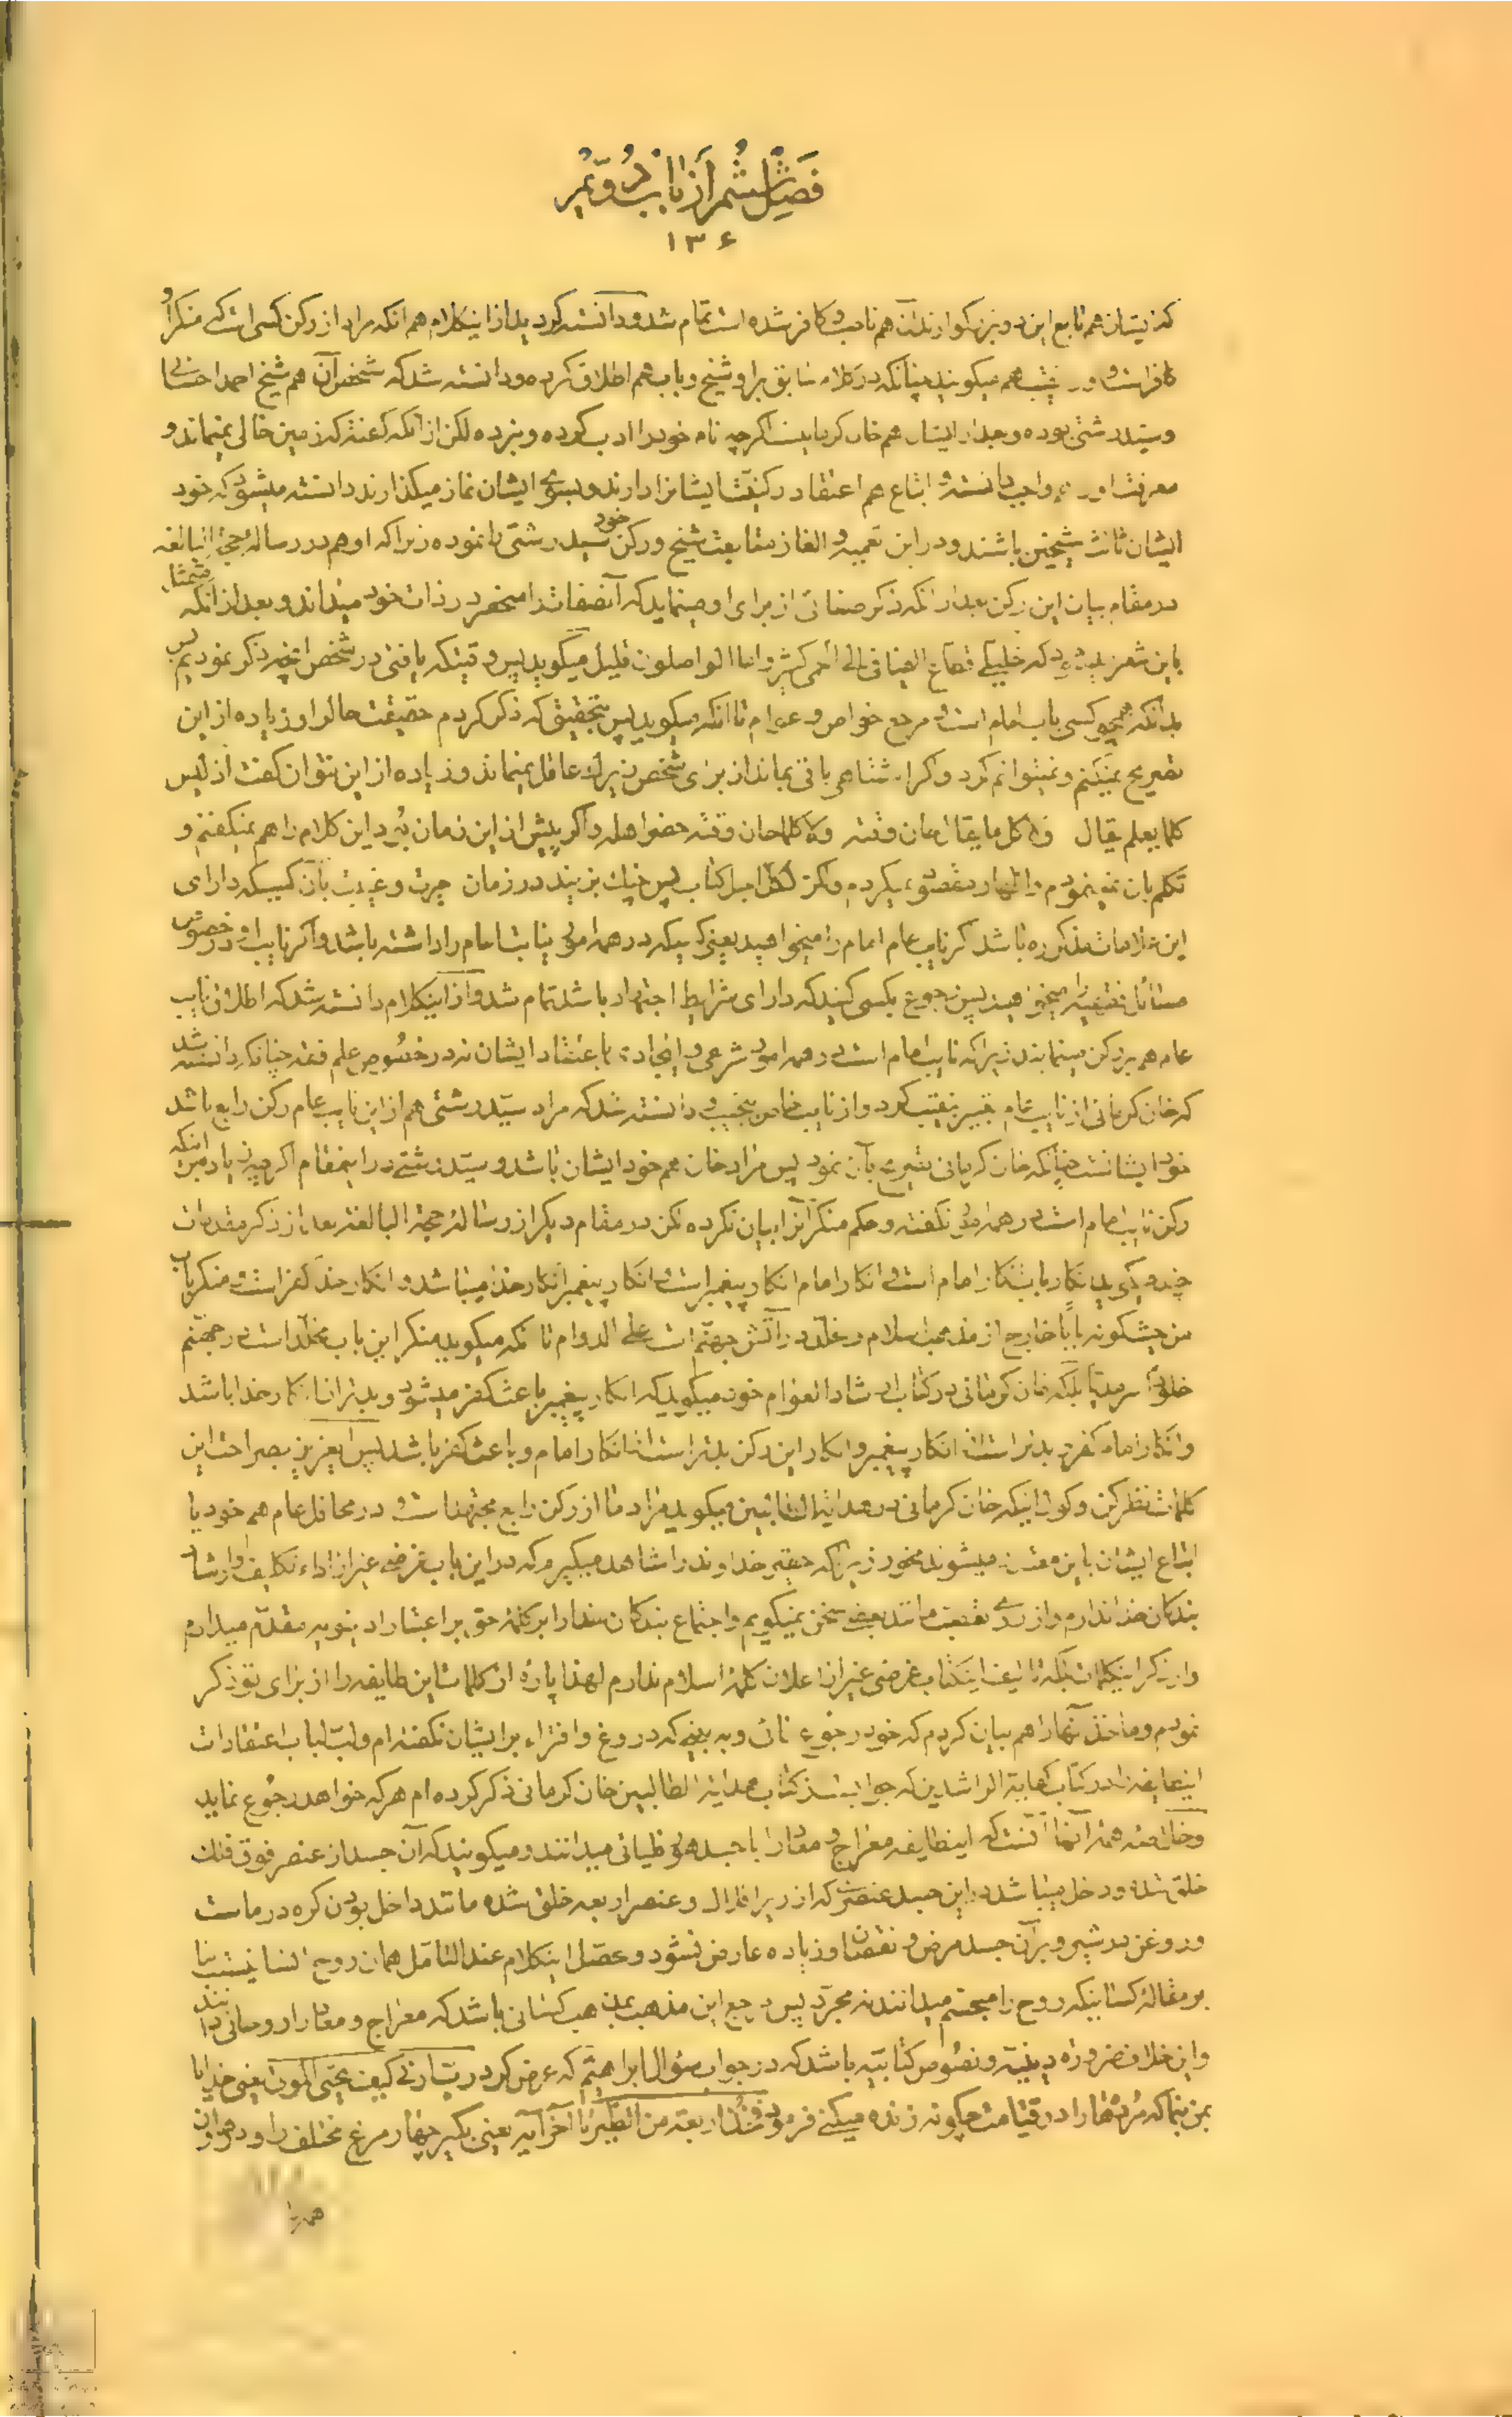 فصل ششم از باب دویم
۱۳۶
که نیستان هم تابع این دو بزرگوارند آن هم ناصب و کافر شده است تمام شد و دانسته گردید از این کلام هم آنکه مراد از رکن کسی است که منکر او
کافر است و نقیب هم میگویند چنانکه در کلام سابق بر او شیخ و باب هم اطلاق کرده و دانسته شد که شخص آن هم شیخ احمد احسائی
و سید رشتی بوده و بعد از ایشان هم خان کرمانیست اگرچه نام خود را ادب کرده و نبرده لکن از آنکه گفته که زمین خالی نمیماند و
معرفت او را واجب دانسته و اتباع هم اعتقاد رکنیت ایشانرا دارند و بسوی ایشان نماز میگذارند دانسته میشود که خود
ایشان ثالث شیخین باشند و در این تعمیه و الغاز متابعت شیخ و رکن خود سید رشتی را نموده زیرا که او هم در رساله حجة البالغه
در مقام بیان این رکن بعد از آنکه ذکر صفاتی از برای او مینماید که آنصفات را منحصر در ذات خود میداند و بعد از آنکه
باین شعر که خلیلی قطاع الفیافی الی الحمی کثیر و اما الواصلون قلیل میگوید پس وقتیکه یافتی در شخص آنچه ذکر نمودیم پس
بدانکه همچو کسی باب امام است و مرجع خواص و عوام تا آنکه میگوید پس بتحقیق که ذکر کردم حقیقت حال او زیاده از این
تصریح نمیکنم و نمیتوانم کرد و اگر اشتباهی باقی بماند از برای شخص زیرک عاقل نمیماند و زیاده از این نتوان گفت از لیس
کلما یعلم یقال و لا کل ما یقال حان وقته و لا کلما حان وقته حضر اهله و اگر پیش از این زمان بود این کلام را هم نمیگفتم و
تکلم بان نمینمودم و اظهار مقصود نمیکردم ولکن لکل اجل کتاب پس چنگ بزنید در زمان حیرت و غیبت بآن کسیکه دارای
این علامات مذکوره باشد اگر نایب عام امام را میخواهید یعنی کسیکه در همه امور نیابت امام را داشته باشد و اگر نایب او در خصوص
مسائل فقهیه را میخواهید پس رجوع بکسی کنید که دارای شرایط اجتهاد باشد تمام شد و از اینکلام دانسته شد که اطلاق نایب
عام هم بر رکن مینمایند زیرا که نایب امام است در همه امور شرعی و ایجادی باعتقاد ایشان نه در خصوص علم فقه چنانکه دانسته شد
که خان کرمانی از نایب عام تعبیر بنقیب کرد و از نایب خاص بنجیب و دانسته شد که مراد سید رشتی هم از این نایب عام رکن رابع باشد
خود ایشانست چنانکه خان کرمانی تصریح بآن نمود پس مراد خان هم خود ایشان باشد و سید رشتی در اینمقام اگرچه زیاده بر اینکه
رکن نایب امام است در همه امور نگفته و حکم منکر آنرا بیان نکرده لکن در مقام دیگر از رساله حجة البالغه بعد از ذکر مقدمات
چند میگوید انکار باب انکار امام است و انکار امام انکار پیغمبر است و انکار پیغمبر انکار خدا میباشد و انکار خدا کفر است و منکر باب
خارج از مذهب اسلام و مخلد در آتش جهنم است علی الدوام تا آنکه میگوید منکر این باب مخلد است در جهنم
بلکه خان کرمانی در کتاب ارشاد العوام خود میگوید که انکار پیغمبر باعث کفر میشود و بدتر از انکار خدا باشد
و انکار امام کفر و بدتر است از انکار پیغمبر و انکار این رکن بدتر است از انکار امام و باعث کفر باشد پس ایعزیز بصراحت این
کلمات نظر کن و گول اینکه خان کرمانی در هدایة الطالبین میگوید مراد ما از رکن رابع مجتهد است و در محافل عام هم خود یا
اتباع ایشان باین معتذر میشوند مخور زیرا که حقیر خداوند را شاهد میگیرم که در این باب غرضی غیر از اداء تکلیف و ارشاد
بندگان خدا ندارم و از روی تعصب مانند بعضی سخن نمیگویم و اجتماع بندگان خدا را بر کلمه حق بر اعتبارات دنیویه مقدم میدارم
و از ذکر اینکلمات بلکه تالیف اینکتاب غرضی غیر از اعلان کلمه اسلام ندارم لهذا پاره از کلمات این طایفه را از برای تو ذکر
نمودم و مآخذ آنها را هم بیان کردم که خود رجوع نمائی و به بینی که دروغ و افتراء بر ایشان نگفته ام و لب لباب اعتقادات
اینطایفه را در کتاب هدایة الراشدین که جواب کتاب هدایة الطالبین خان کرمانی ذکر کرده ام هر که خواهد رجوع نماید
و خلاصه همه آنها آنست که اینطایفه معراج و معاد را با جسد هورقلیائی میدانند و میگویند که آن جسد از عنصر فوق فلک
خلق شده و داخل میباشد در این جسد عنصری که از زیر افلاک و عنصر اربعه خلق شده مانند داخل بودن کره در ماست
و روغن در شیر و بر آن جسد مرض و نقصان و زیاده عارض نشود و محصل اینکلام عند التامل همان روح انسانیست بنا
بر مقاله کسانیکه روح را مجسم میدانند نه مجرد پس مرجع این مذهب بمذهب کسانی باشد که معراج و معاد را روحانی دانند
و این خلاف ضروره دینیه و نصوص کتابیه باشد که در جواب سئوال ابراهیم که عرض کرد رب ارنی کیف تحیی الموتی یعنی خدایا
بمن بنما که مرده‌ها را در قیامت چگونه زنده میکنی فرمود فخذ اربعة من الطیر تا آخر آیه یعنی بگیر چهار مرغ مختلف را و در هاون
همه را